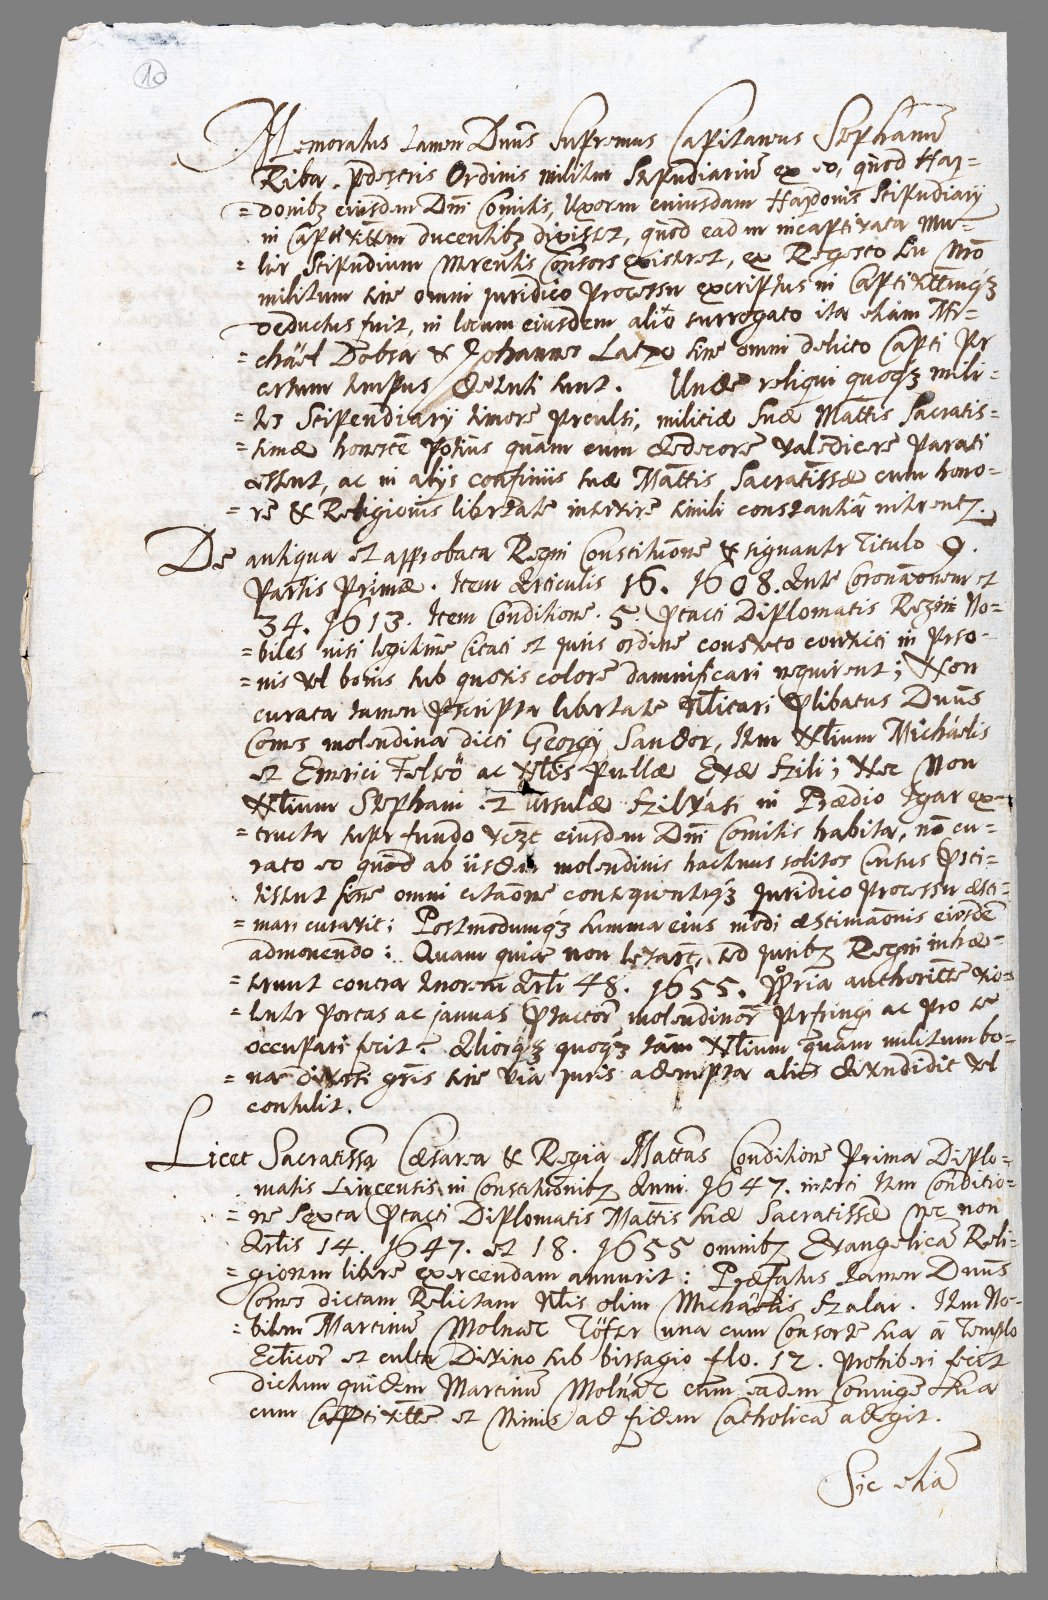 10
Memoratus tamen Dnũs Supremus Capitaneus Stephanũ
Riba, pdestris Ordinis militem Stipendiariũ ex eo, quod Haj-
=donibz eiusdem Dnĩ Comitis, Uxorem cuiusdam Hajdonis Stipendiarij
in captivittem ducentibz dixisset, quòd eadem incaptivata Mu-
=lier Stipendium Merentis Consors existeret, ex Regesto seu Nrõ
militum sine omni juridico Processu excriptus in Captivittemq́z
deductus fuit, in locum eiusdem alio surrogato ita etiam Mi-
=chäel Dobsa & Johannes Laczo sine omni delicto Capti Per
certum tempus detenti sunt. Unde reliqui quoq́z mili-
=tes Stipendiarij timore perculsi, militiæ suæ Mattis Sacratis-
=simæ honestè potiùs quàm cum dedecore valedicere parati
essent, ac in alijs confinijs suæ Mattis Sacratissæ cum hono-
=re & Religionis libertate intervire simili constantiâ niterentz.
De antiqua et approbata Regni Constitutione & signanter Titulo 9.
Partis Primæ. Item Articulis 16. 1608. Ante Coronãonem et
34. 1613. Item Conditione. 5. Ptacti Diplomatis Regni No-
=biles nisi legitimè citati et juris ordine consveto convicti in Perso-
=nis vel bonis sub quovis colore damnificari nequirent; Non
curata tamen Pscripta libertate Nlitari Plibatus Dnũs
Comes molendina dicti Georgij Sandor, Item Nlium Michaelis
et Emerici Felsö ac Nlis Puellæ Evæ Szili; Nec Non
Nlium Stephani et Ursulæ Szilvási in Prædio Igar ex-
=tructa super fundo eiusdem Dnĩ Comitis habita, nõ cu-
=rato eo quòd ab iisdem molendinis hactenus solitos Census Psti-
tissent sine omni citãone consequenterq́z juridico Processu æsti-
=mari curavit; Postmodumq́z summa eius modi æstimãonis eiosdẽ
admonendo: Quam quia non levarũt, sed juribz Regni inhæ-
=serunt contra tenorem Artli 48. 1655. Ppria authoritte vio-
=lenter Portas ac januas Ptactor̃ molendinor̃ Perfringi ac pro se
occupari fecit: Aliorq́z quoq́z tàm Nlium quam militum bo-
=na diversi gñis sine via juris adempta aliis divendidit vel
contulit.
Licet Sacratissa Cæsarea & Regia Mattas Conditione Prima Diplo-
matis Lincensis in Constitutionibz Anni 1647. inserti Item Conditio-
=ne Sexta Ptacti Diplomatis Mattis suæ Sacratissæ nec non
Artlis 14. 1647. et 18. 1655 omnibz Evangelicã Reli-
=gionem liberè exercendam annuerit: Præfatus tamen Dnũs
Comes dictam Relictam Nlis olim Michäelis Szalai. Item No-
=bilem Martinũ Molnar Töfter una cum Consorte sua à Templo
Ecclicor̃ et cultu Divino sub birsagio flo. 12. prohiberi fecit
dictum quidem Martinũ Molnár cum eadem Conjuge sua
cum Captivitte et Minis ad fidem Catholicã adegit.
Sic etiã